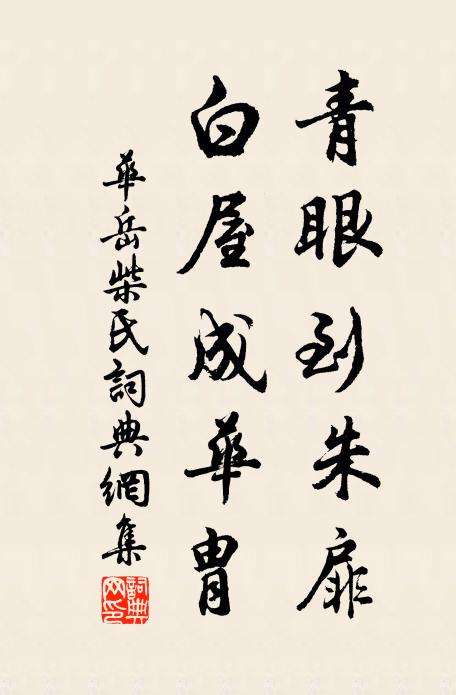 青眼到朱扉
白屋成華胄
華岳柴氏詞典網集
詞典網印